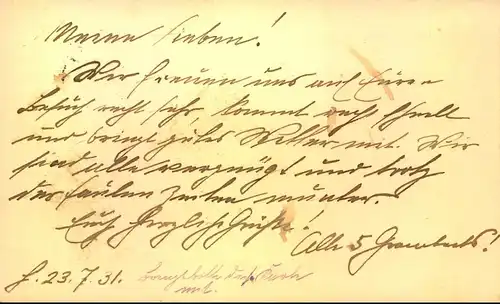 Meine Lieben!
Wir freuen uns auf Euren
Besuch recht sehr, kommt recht schnell
und bringt gutes Wetter mit. Wir
sind alle vergnügt und trotz
der faulen Zeiten munter.
Euch herzliche Grüße!
Alle 5
23.7.31. Karte
mit.